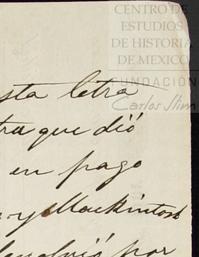 CENTRO DE
ESTUDIOS
DE HISTORIA
DE MEXICO
FUNDACIÓN
Carlos Slim
sta letra
tra que dió
en pago
y Mackintosh
por